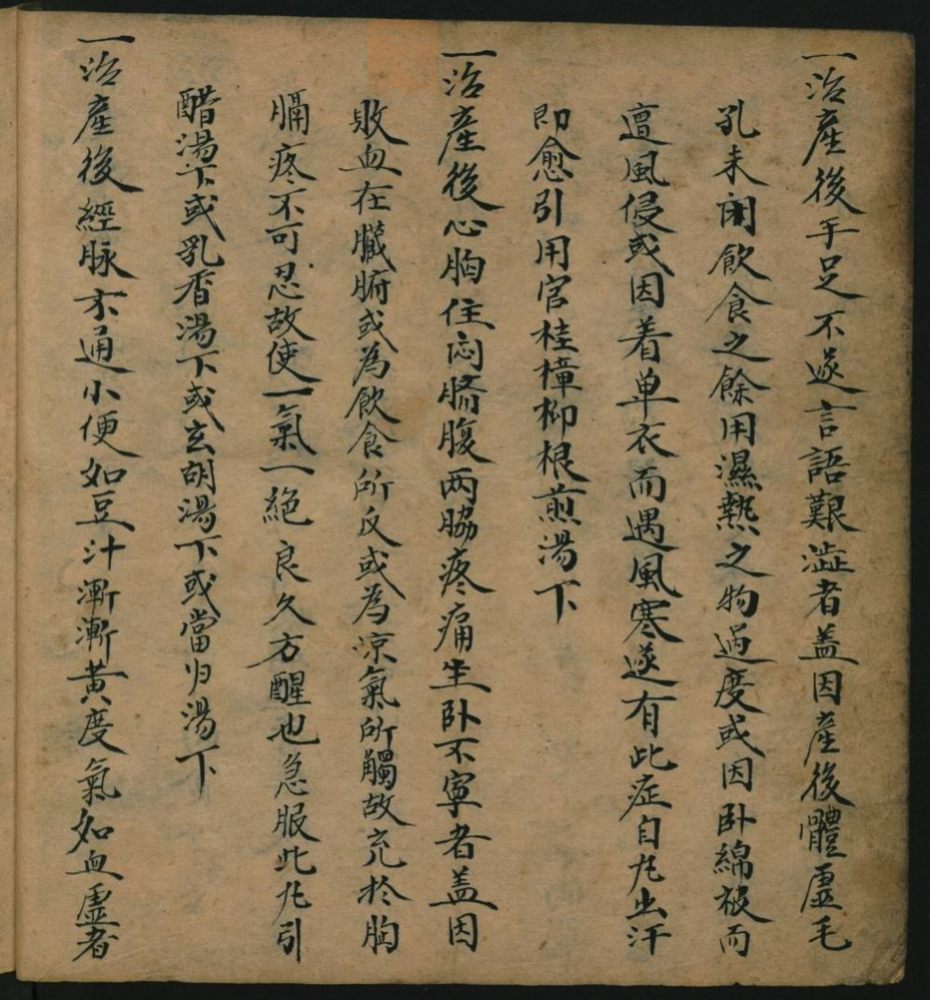 一治產後手足不遂言語艱澁者盖因產後體虛毛
孔未閉飲食之餘用濕熱之物過度或因卧綿被而
遭風侵或因着单衣而遇風寒遂有此症自九出汗
即愈引用官桂樟柳根煎湯下
一治產後心胸住闷脐腹两脇疼痛坐卧不寧者盖因
敗血在臟腑或為飲食所反或為凉氣所觸故充於胸
膈疼不可忍故使一氣一絕良久方醒也急服此九引
醋湯下或乳香湯下或玄胡湯下或當归湯下
一治產後經脉不通小便如豆汁漸漸黃度氣如血虛者